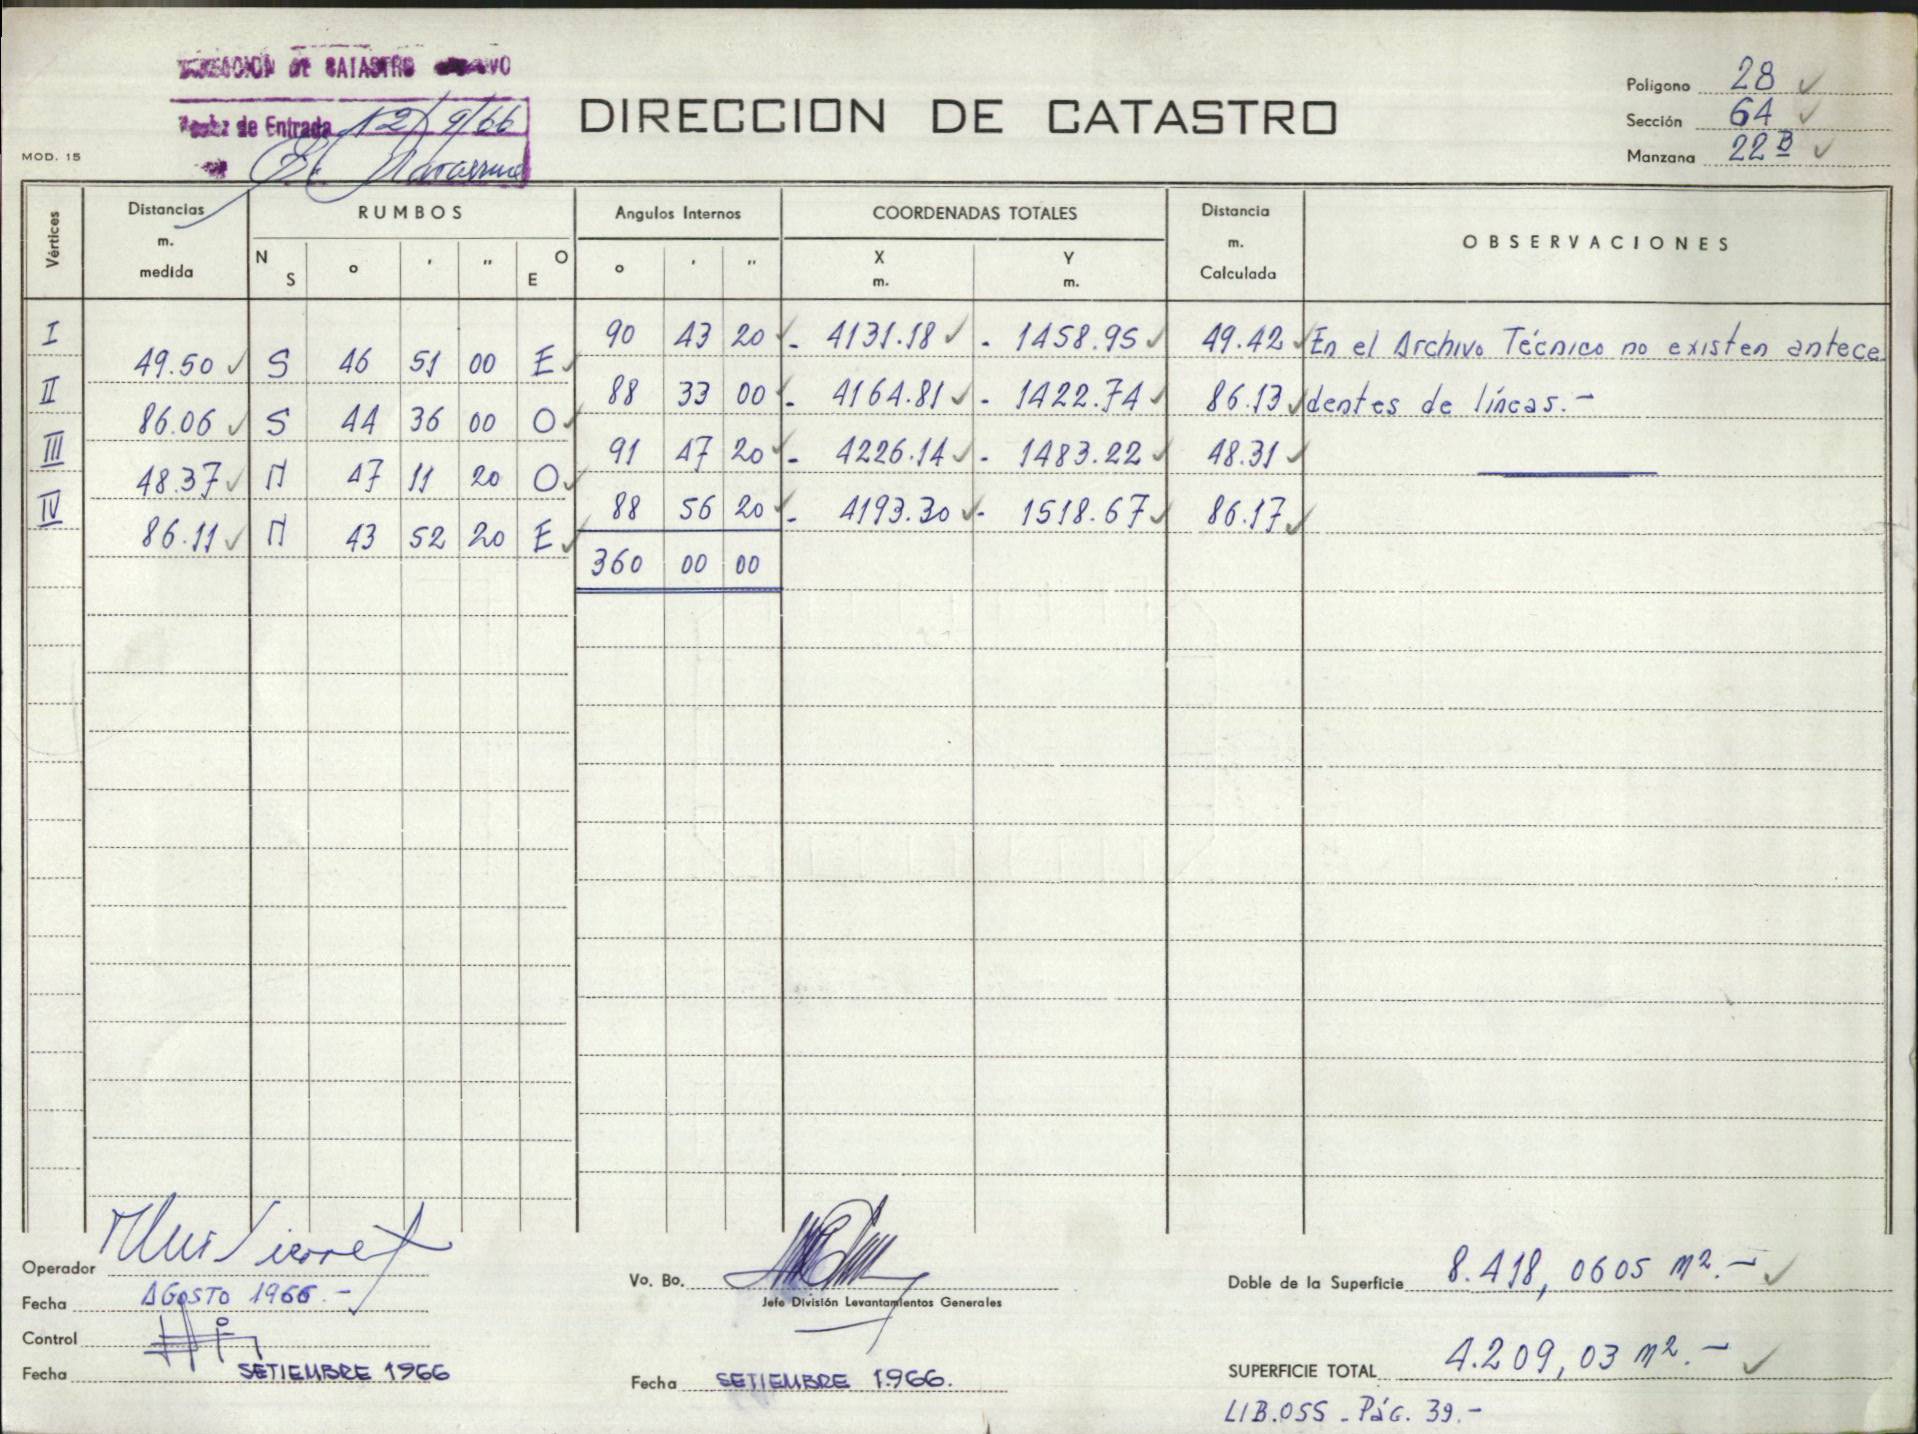 DIRECCION DE CATASTRO
Fecha de Entrada 12/9/66
DIRECCION DE CATASTRO
Polígono 28
Sección 64
Manzana 22 B
MOD. 15
Vértices
Distancias m. medida
RUMBOS
N S o ' '' O E
Angulos Internos
o ' ''
COORDENADAS TOTALES
X m. Y m.
Distancia m. Calculada
OBSERVACIONES
I 90 43 20 - 4131.18 - 1458.95 49.42 En el Archivo Técnico no existen antece
49.50 S 46 51 00 E
II 88 33 00 - 4164.81 - 1422.74 86.13 dentes de líneas.-
86.06 S 44 36 00 O
III 91 47 20 - 4226.14 - 1483.22 48.31
48.37 N 47 11 20 O
IV 88 56 20 - 4193.30 - 1518.67 86.17
86.11 N 43 52 20 E
360 00 00
Operador
Fecha AGOSTO 1966.-
Control
Fecha SETIEMBRE 1966
Vo. Bo.
Jefe División Levantamientos Generales
Fecha SETIEMBRE 1966.
Doble de la Superficie 8.418,0605 m².-
SUPERFICIE TOTAL 4.209,03 m².-
LIB.055 - Pág. 39.-